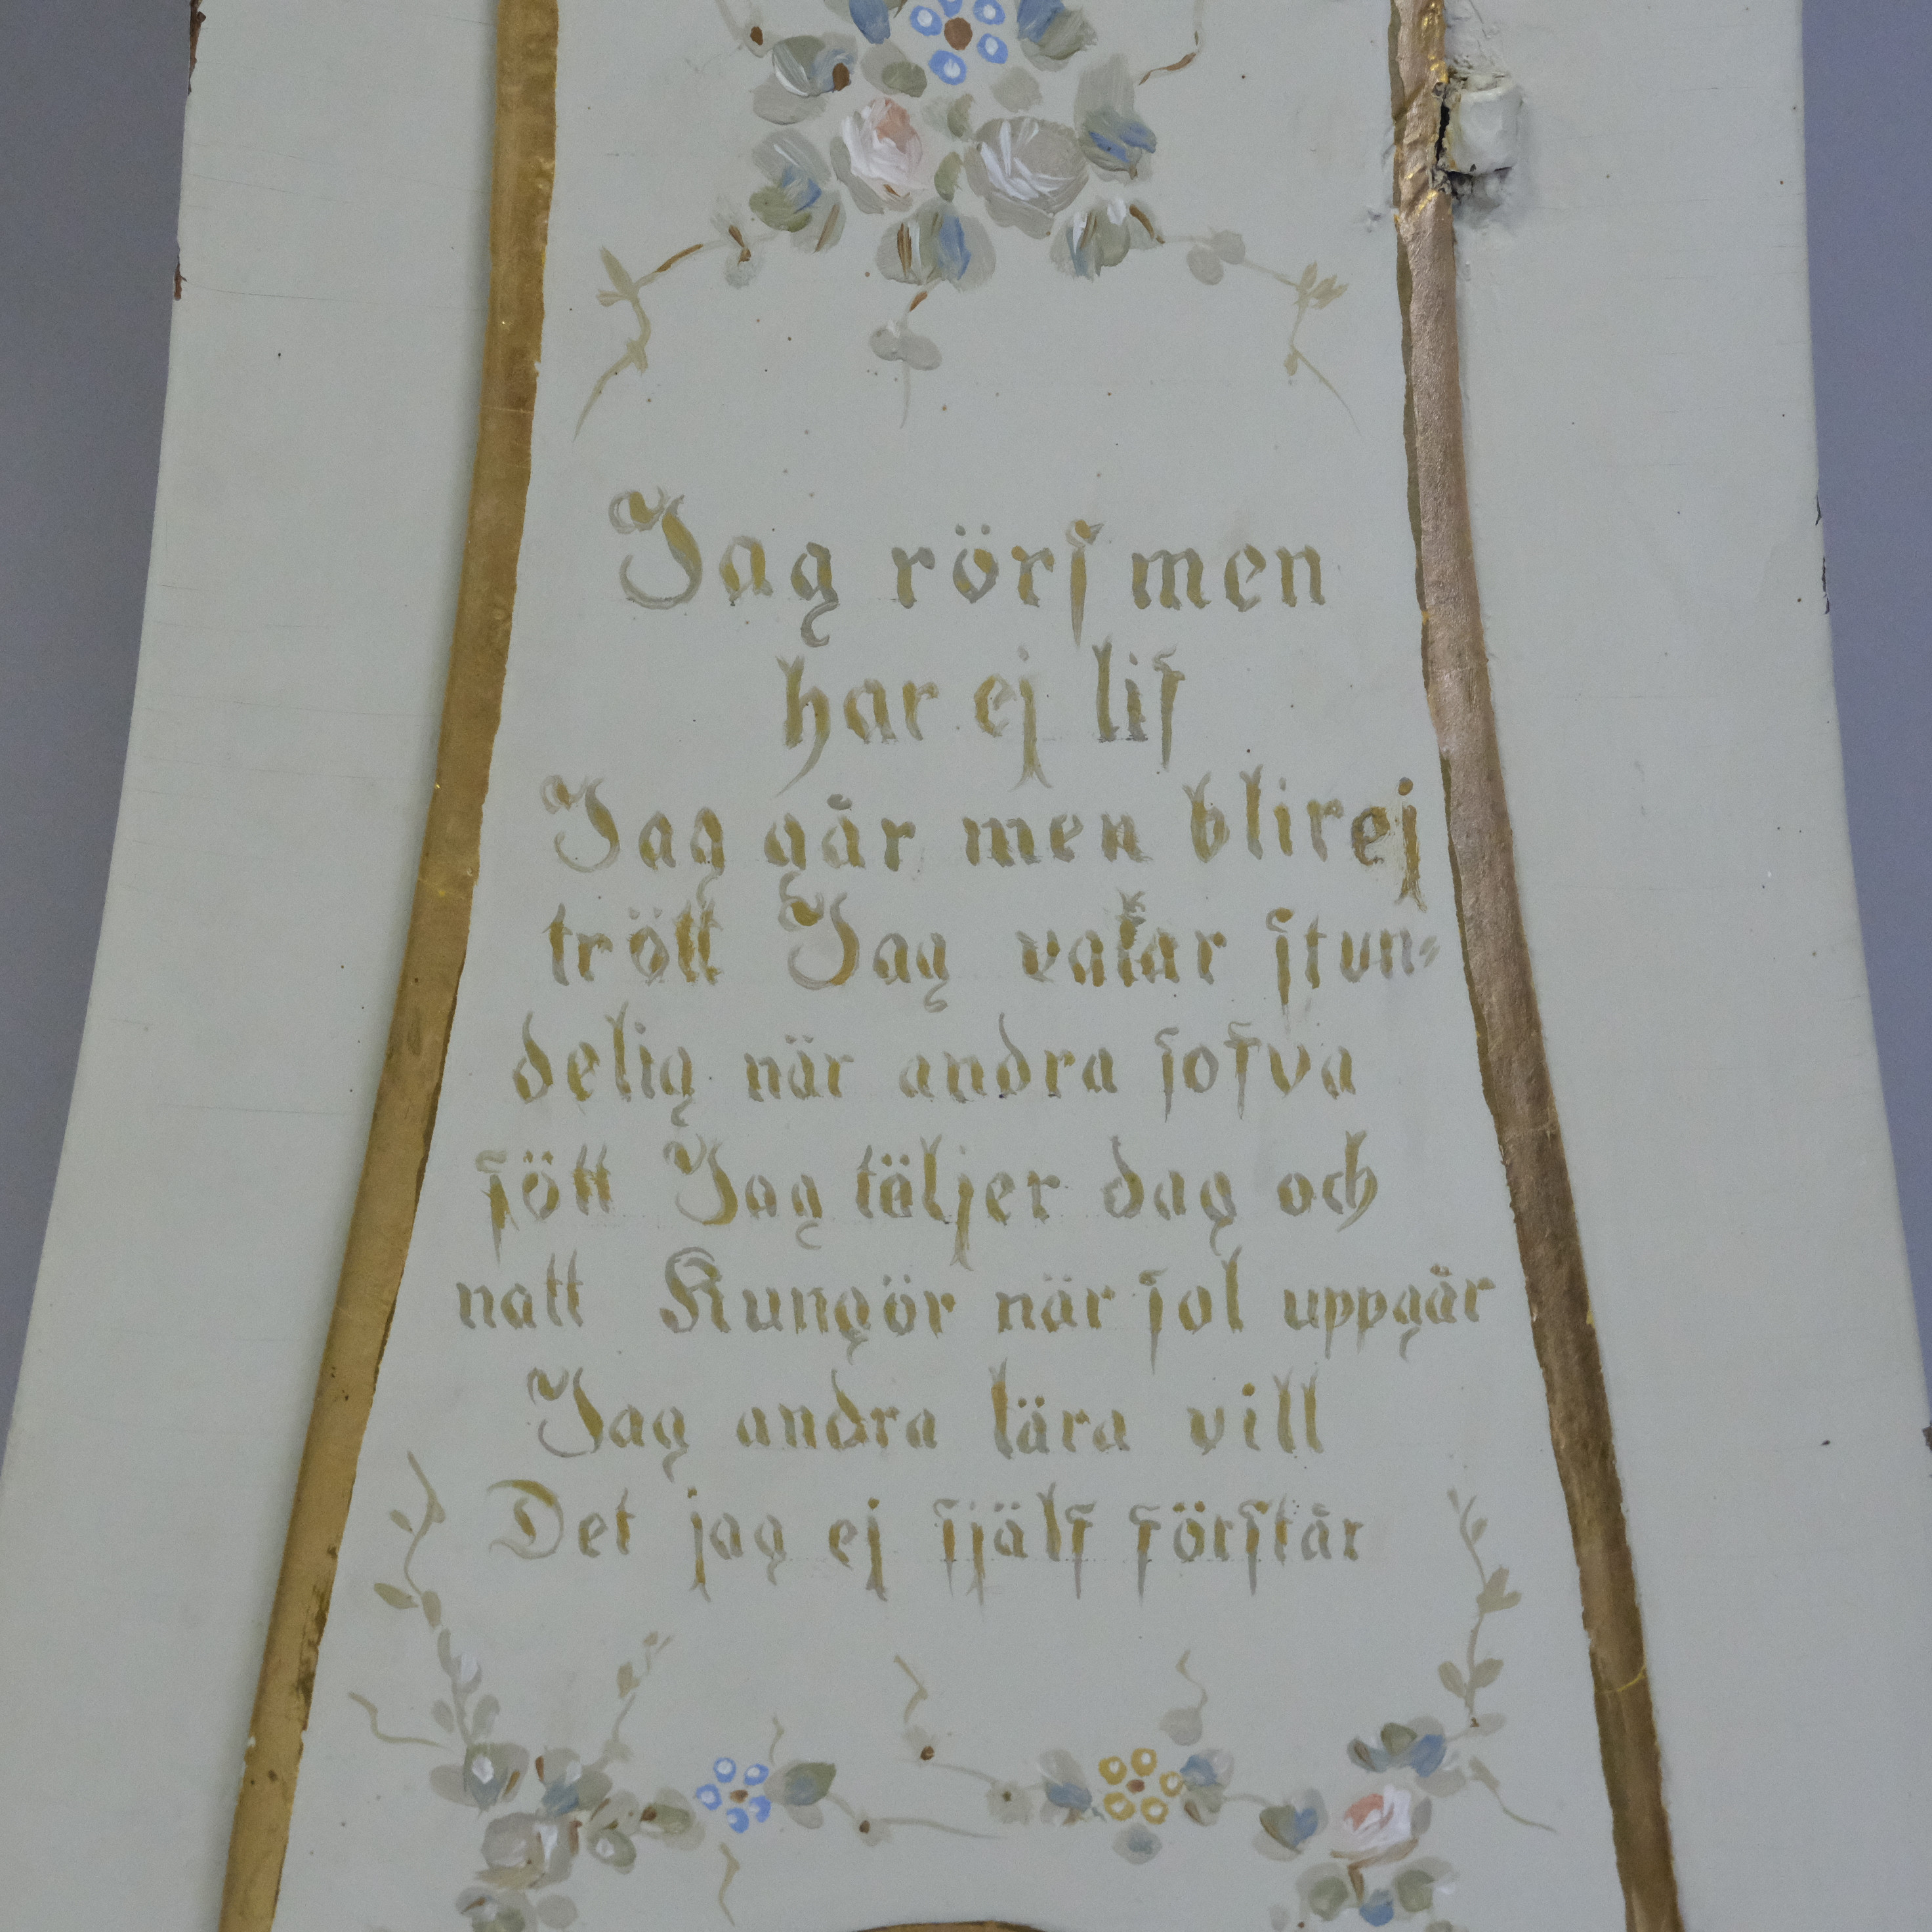 Jag rörs men
har ej lif
Jag går men blir ej
trött Jag vakar stun-
delig när andra sofva
sött Jag täljer dag och
natt Kungör när sol uppgår
Jag andra lära vill
Det jag ej sjålf förstår